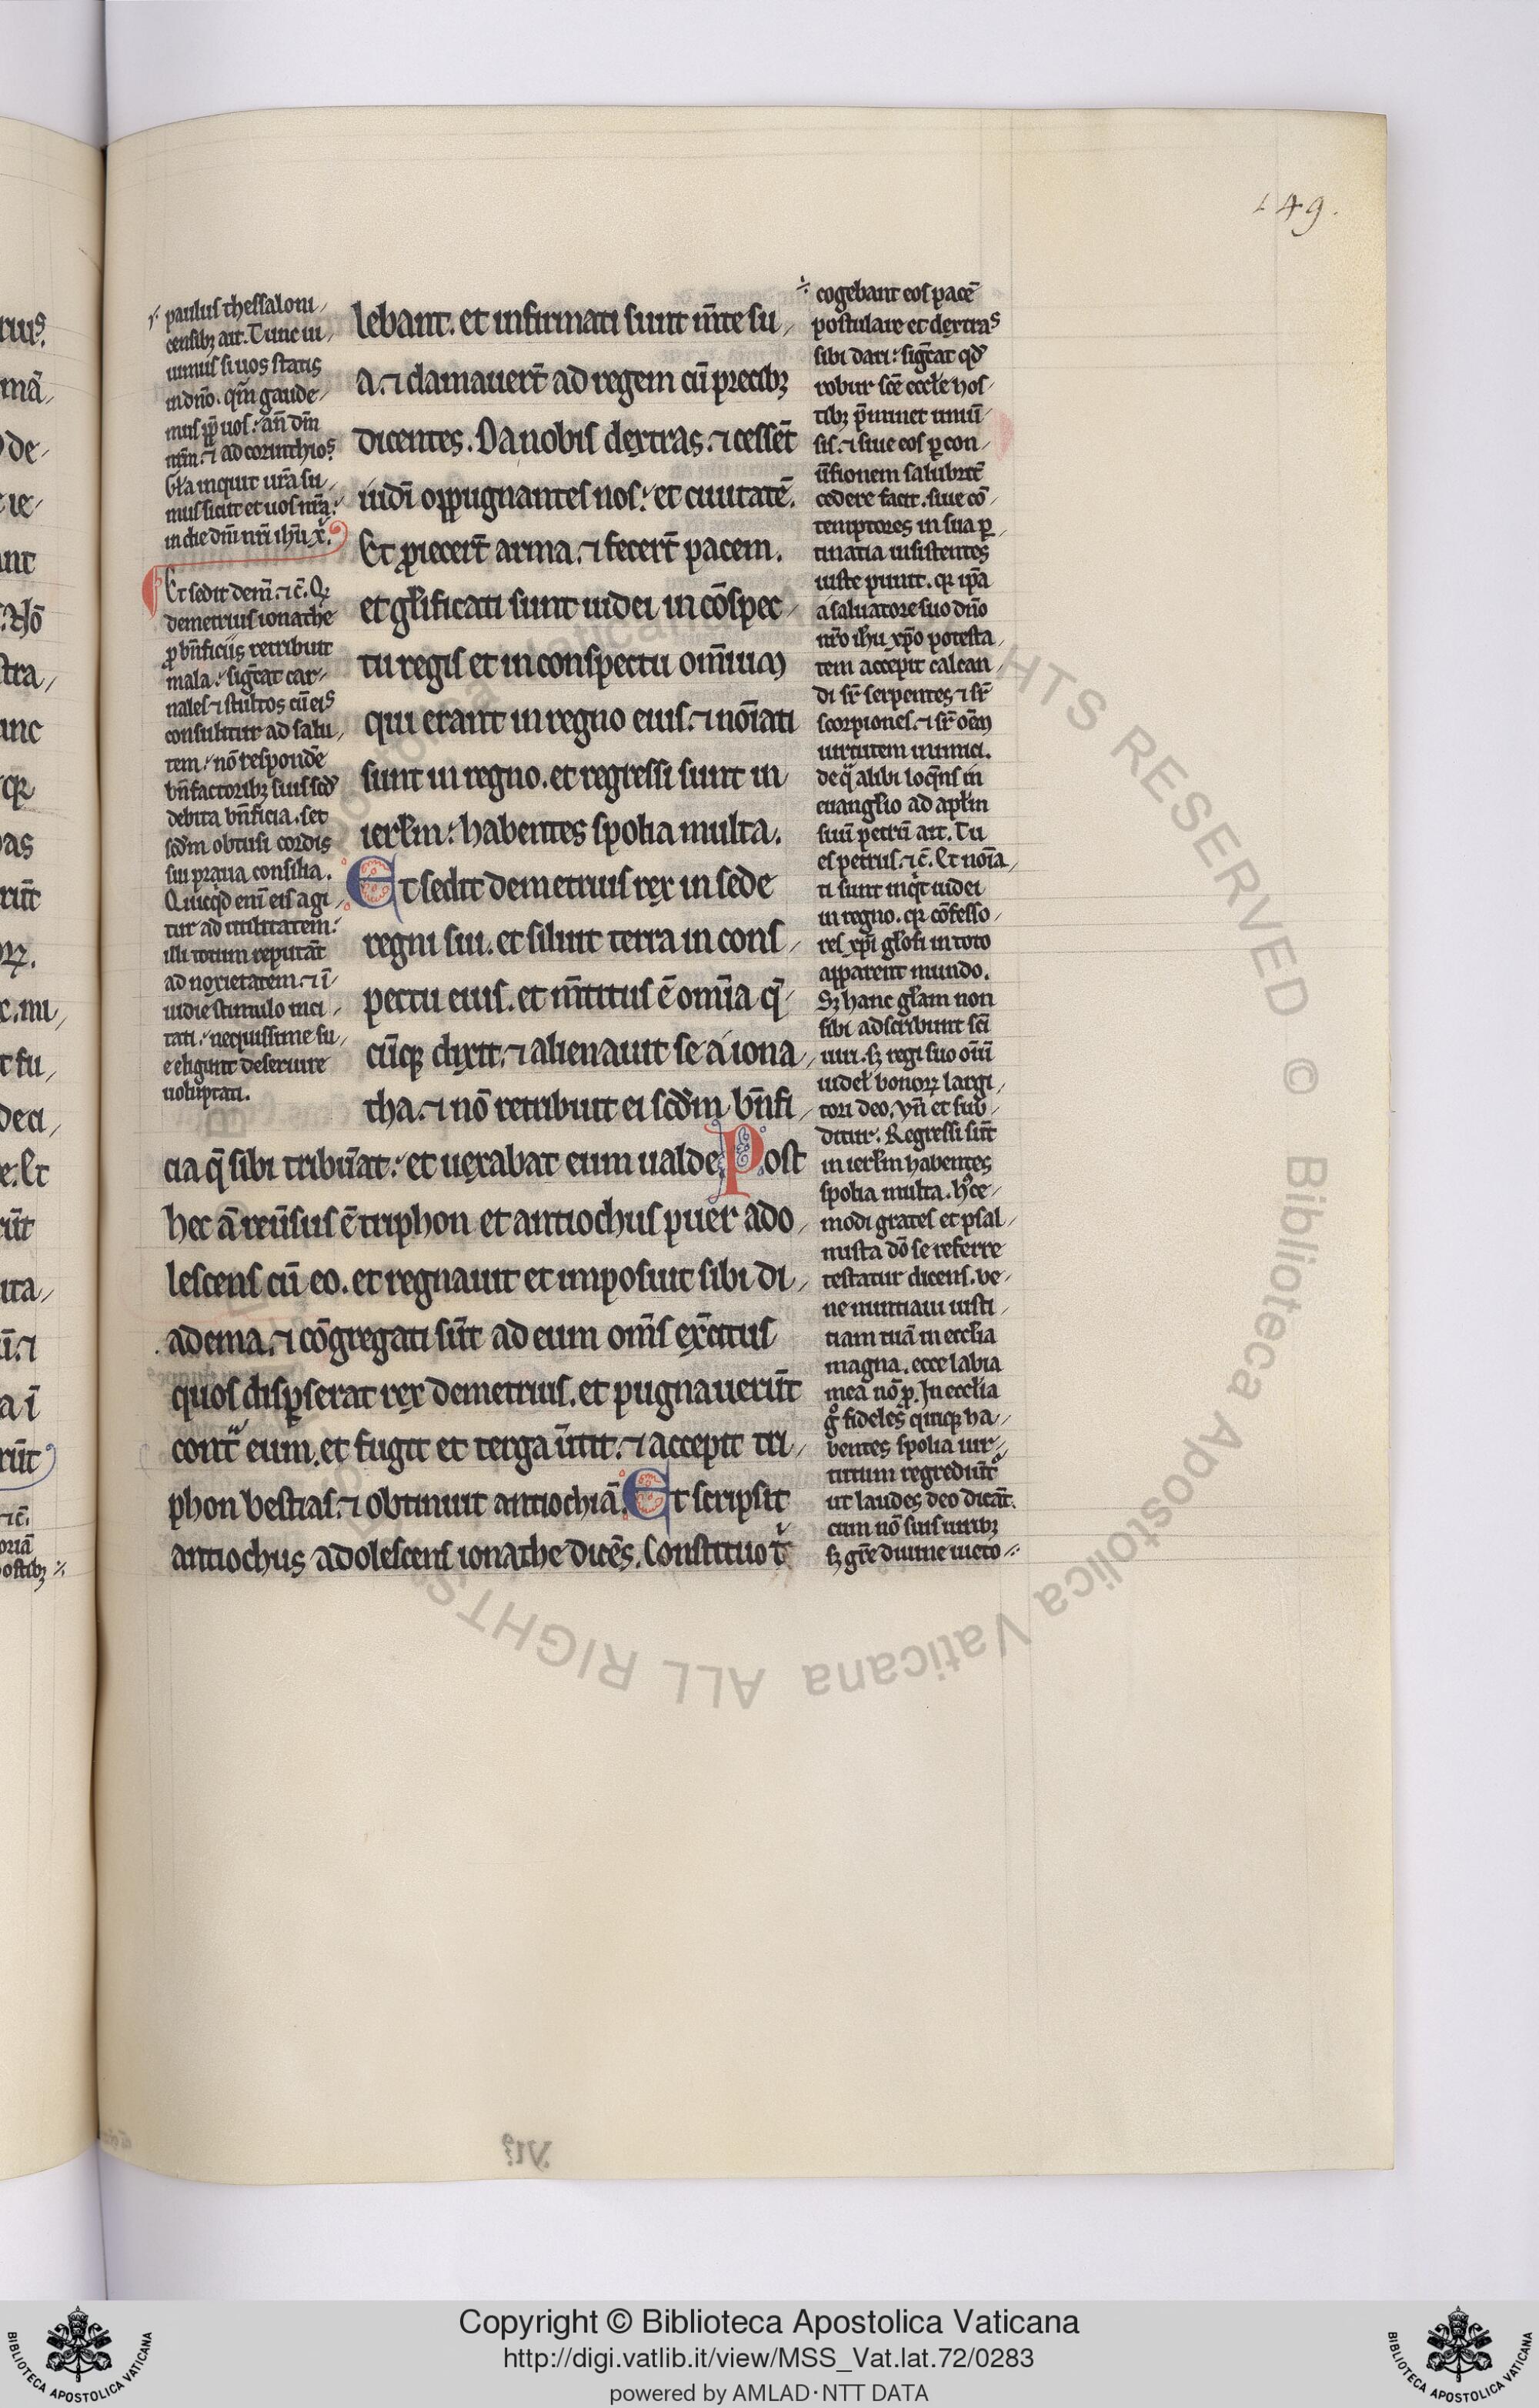 149.
paulus thessaloni
censibꝫ ait. Tunc ui
uimus si uos statis
in dn̄o. qm̄ gaude
mus ꝓp̄ uos. an̄ dm̄
nr̄m. ⁊ ad corinthios.
Gl̄a inquit ur̄a su
mus sicut et uos nr̄a.
in die dn̄i nr̄i ih̄u x̄.
Et sedit dem̄. ⁊c̄. Qꝛ
demetrius ionathe
ꝓ bn̄ficiis retribuit
mala. sigc̄at car
nales ⁊ stultos cū eis
consulitur ad salu
tem. nō respondē
bn̄factoribꝫ suis scd̄
debita bn̄ficia. set
scd̄m obtusi cordis
sui praua consilia.
Quicqd enī eis agi
tur ad utilitatem.
illi totum reputāt
ad noxietatem. ⁊ ī
uidie stimulo inci
tati. nequissime su
e eligunt deseruire
uoluptati.
lebant. et infirmati sunt m̄te su
a. ⁊ clamauerт̄ ad regem cū precibꝫ
dicentes. Da nobis dextras. ⁊ cessēt
iudī oppugnantes nos. et ciuitatē.
Et ꝓiecerт̄ arma. ⁊ fecerт̄ pacem.
et gl̄ificati sunt iudei in cōspec
tu regis et in conspectu omīum
qui erant in regno eius. ⁊ noīati
sunt in regno. et regressi sunt in
ierl̄m. habentes spolia multa.
Et sedit demetrius rex in sede
regni sui. et siluit terra in cons
pectu eius. et m̄titus ē omīa q̄
cūqꝫ dixit. ⁊ alienauit se a iona
tha. ⁊ nō retribuit ei scd̄m bn̄fi
cia q̄ sibi tribūat. et uexabat eum ualde. Post
hec ā reūsus ē triphon et antiochus puer ado
lescens cū eo. et regnauit et imposuit sibi di
adema. ⁊ cōgregati sūt ad eum om̄s ex̄citus
quos disꝑserat rex demetrius. et pugnauerūt
contᵃ eum. et fugit et terga ūtit. ⁊ accepit tri
phon bestias. ⁊ obtinuit antiochiā. Et scripsit
antiochus adolescens ionathe dicēs. Constituo t
cogebant eos pacē
postulare et dextras
sibi dari. sigc̄at qd̄
robur scē eccl̄e hos
tibꝫ p̄minet uniū
sis. ⁊ siue eos ꝑ con
ūsionem salubrit̄
cedere facit. siue cō
temptores in sua ꝑ
tinatia insistentes
iuste punit. qꝛ ip̄a
a saluatore suo dn̄o
nr̄o ih̄u xp̄o potesta
tem accepit calcan
di sr̄ serpentes ⁊ sr̄
scorpiones. ⁊ sr̄ oēm
uirtutem inimici.
de q̄ alibi loqn̄s in
euangl̄io ad apl̄m
suū petrū ait. Tu
es petrus. ⁊c̄. Et noīa
ti sunt inqt iudei
in regno. qꝛ cōfesso
res xp̄i gl̄osi in toto
apparent mundo.
Sꝫ hanc gl̄am non
sibi adscribunt scī
uiri. sꝫ regi suo oīū
uidel̄ bonoꝝ largi
tori deo. vn̄ et sub
ditur. Regressi sūt
in ierl̄m habentes
spolia multa. hꝰce
modi grates et psal
mista dō se referre
testatur dicens. be
ne nuntiaui iusti
tiam tuā in eccl̄ia
magna. ecce labia
mea nō ꝓ. In eccl̄ia
gᵒ fideles quiqꝫ ha
bentes spolia uir
tutum regrediunt᷑
ut laudes deo dicāt.
cum nō suis uiribꝫ
sꝫ gr̄e diuine uicto
Copyright © Biblioteca Apostolica Vaticana
http://digi.vatlib.it/view/MSS_Vat.lat.72/0283
powered by AMLAD·NTT DATA